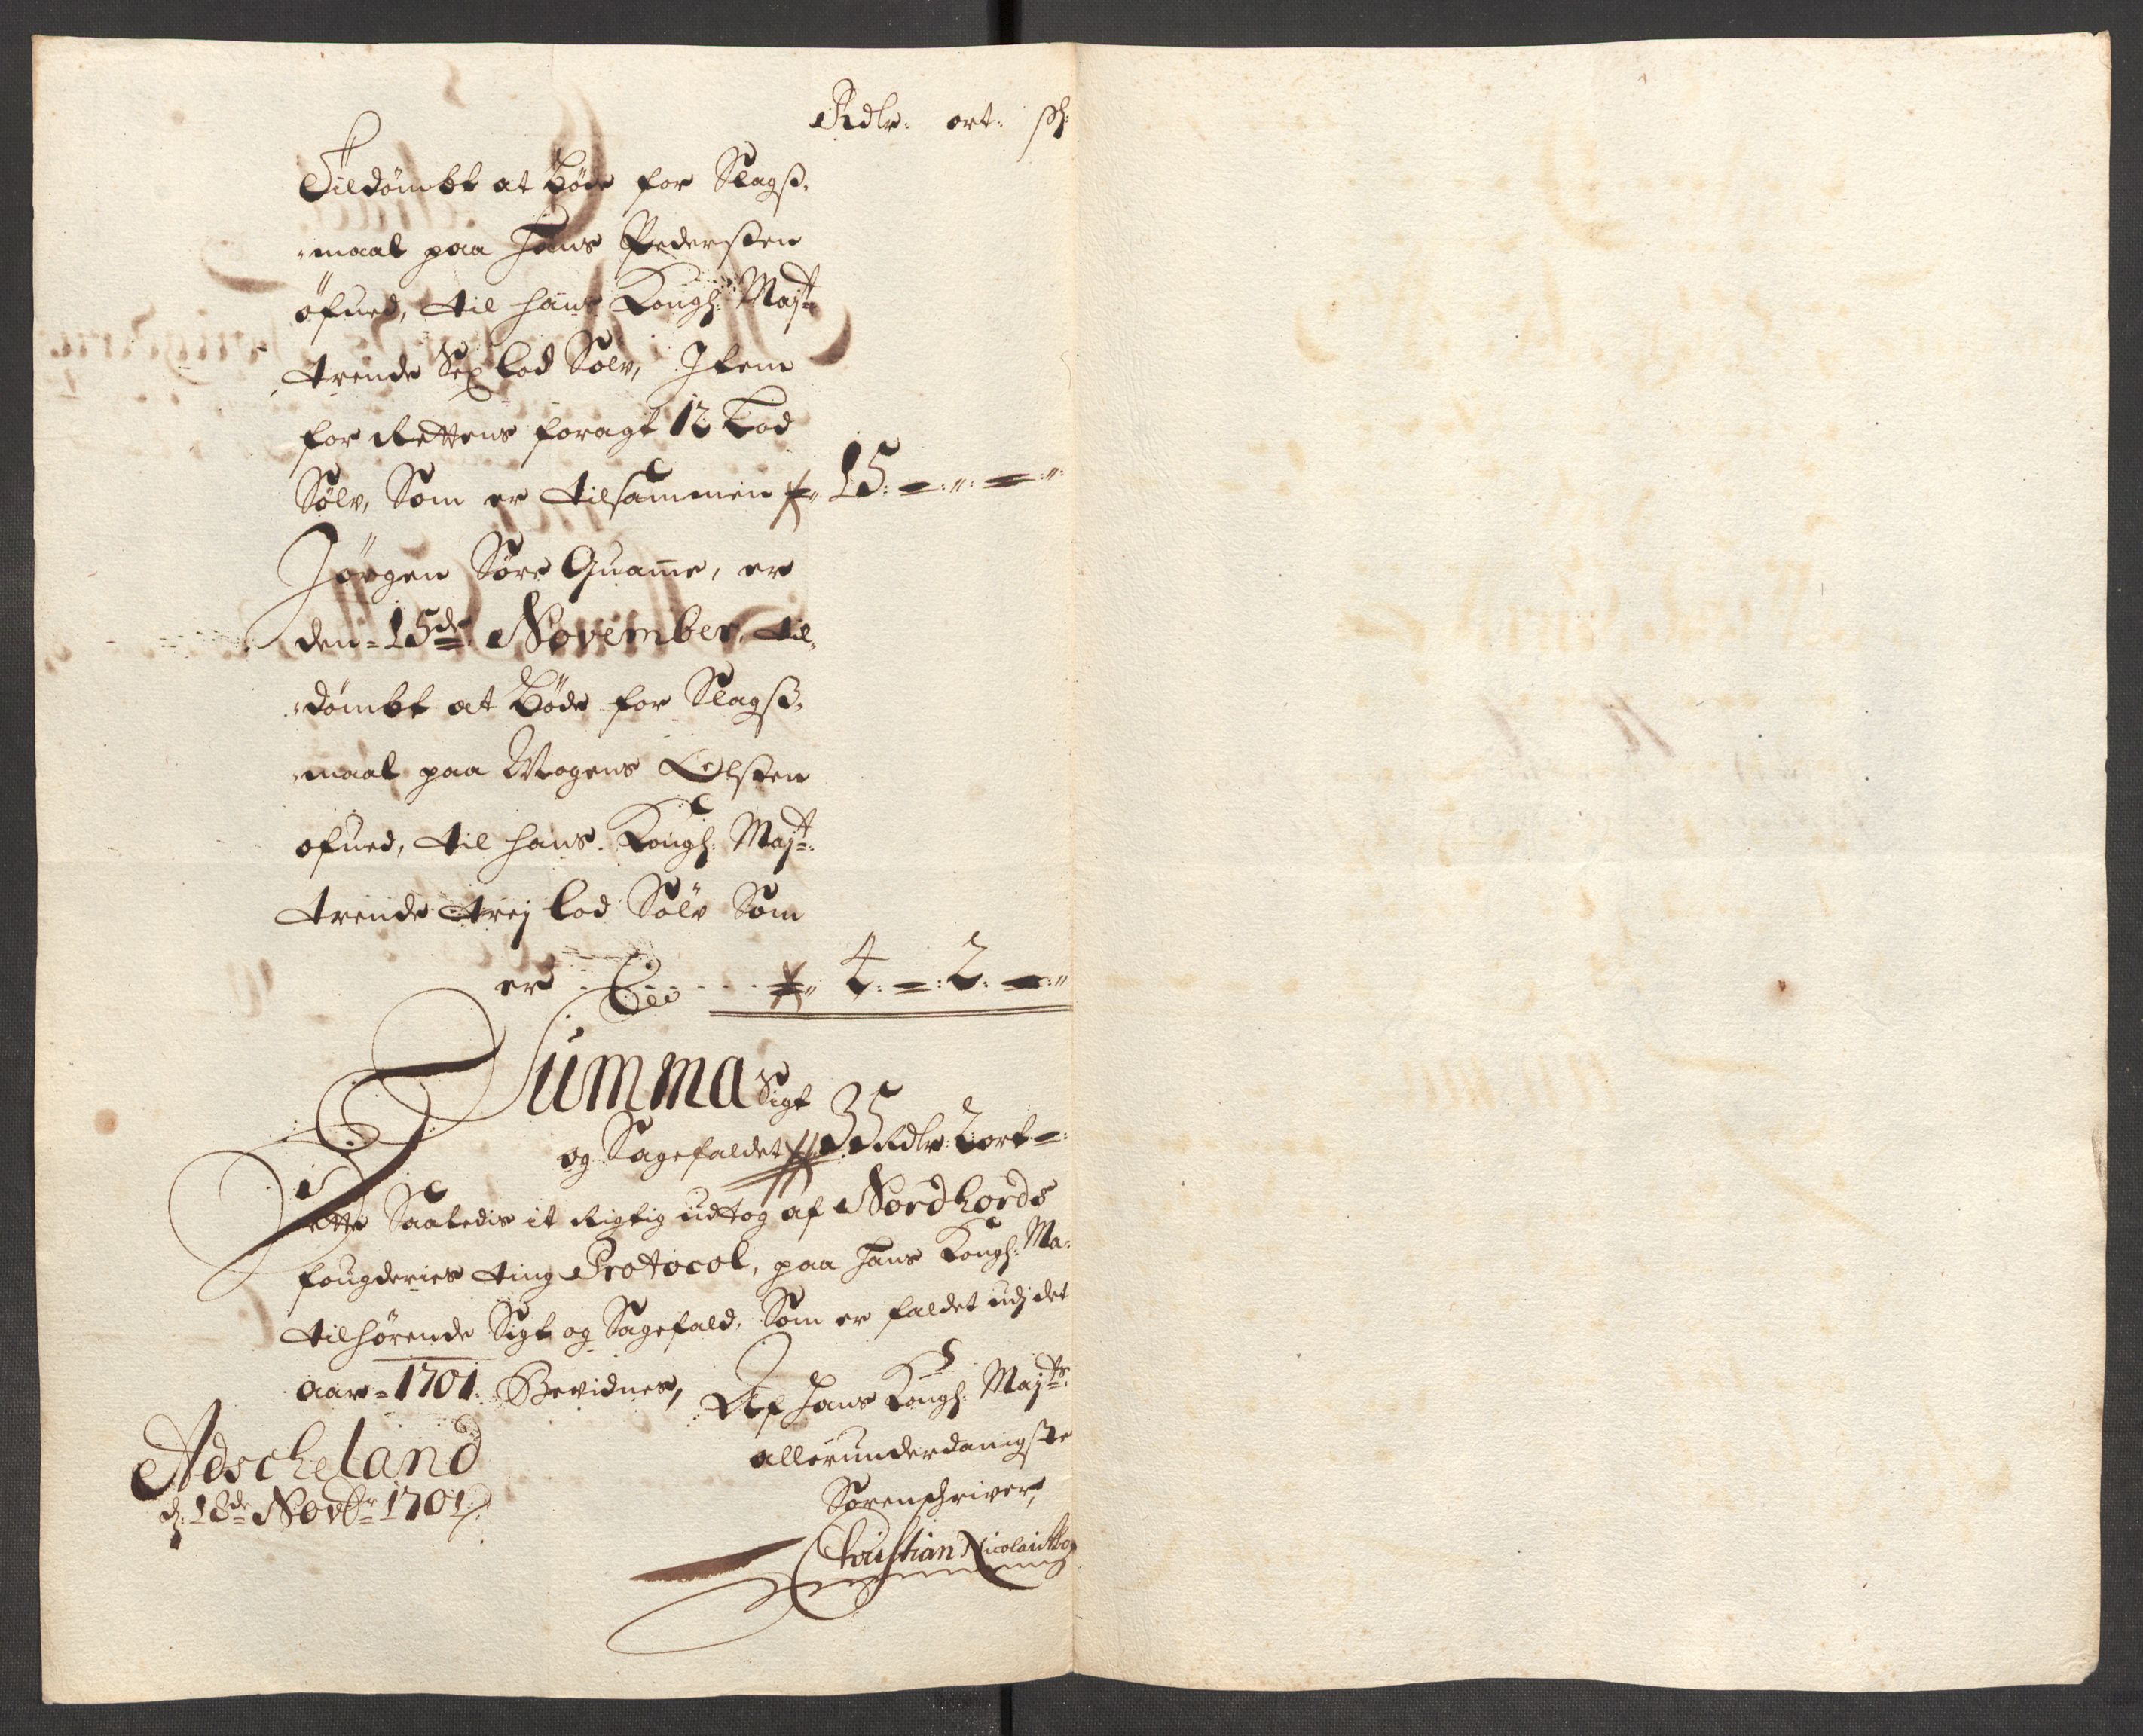 Rdlr: ort: sk:
Tildømbt at bøde for Slags-
maal paa Hans Pedersøen
øfued, til hans Kongl: Maÿt:
trende Sex lod Sølv, Item
for Rettens foragt 12 Lod
Sølv, Som er tilsammen 15: -:":-:":
Jørgen Søre Quame, er
den 15de November, til-
dømbt at bøde for Slags-
maal paa Mogens Olsøen
øfued, til hans Kongl: Maÿt:
trende treÿ lod Sølv Som
er 4:-:2:-:"
Summa Sigt
og Sagefaldet 35 Rdlr: 2 ort -:
Dette Saaledis it Rigtig udtog af Nordhords
fougderies ting Protocol, paa Hans Kongl: Ma:
tilhørende Sigt og Sagefald, Som er faldet udj det
aar 1701. Bevidnes,
Af Hans Kongl: Maÿts:
allerunderdanigste
Sorenskriver,
Christian Nicolai
Adscheland
d: 18de Novbr 1701